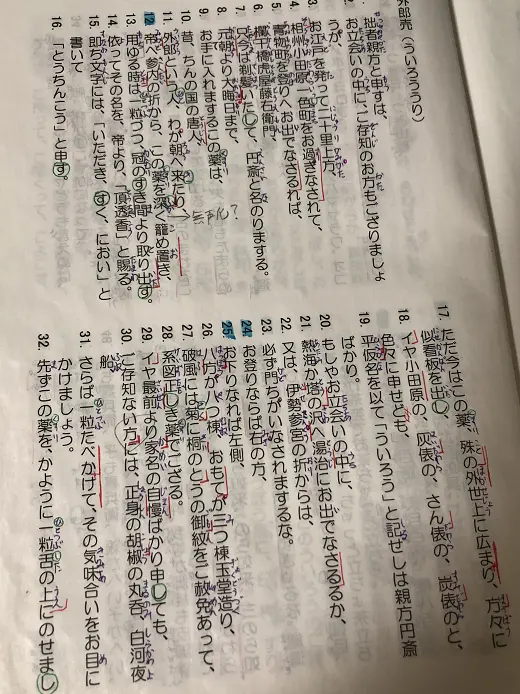 外郎売（ういろううり）
1. 拙者親方と申すは、
2. お立会いの中に、ご存知のお方もござりましょ
うが、
3. お江戸を発って二十里上方、
4. 相州小田原一色町をお過ぎなされて、
5. 青物町を登りへお出でなさるれば、
6. 欄干橋虎屋藤右衛門、
7. 只今は剃髪いたして、円斎と名のりまする。
8. 元朝より大晦日まで、
9. お手に入れまするこの薬は、
10. 昔、ちんの国の唐人、
11. 外郎という人、わが朝へ来たり、
12. 帝へ参内の折から、この薬を深く籠め置き、
13. 用ゆる時は一粒づつ、冠のすき間より取り出す。
14. 依ってその名を、帝より、「頂透香」と賜る。
15. 即ち文字には、「いただき、すく、におい」と
書いて
16. 「とうちんこう」と申す。
17. ただ今はこの薬、殊の外世上に広まり、方々に
似看板を出し、
18. イヤ小田原の、灰俵の、さん俵の、炭俵のと、
色々に申せども、
19. 平仮名を以て「ういろう」と記せしは親方円斎
ばかり。
20. もしやお立会いの中に、
21. 熱海か塔の沢へ湯治にお出でなさるるか、
22. 又は、伊勢参宮の折からは、
23. 必ず門ちがいなされまするな。
24. お登りならば右の方、
25. お下りなれば左側、
26. 八方が八つ棟、おもてが三つ棟玉堂造り、
27. 破風には菊に桐のとうの御紋をご赦免あって、
28. 系図正しき薬でござる。
29. イヤ最前より家名の自慢ばかり申しても、
30. ご存知ない方には、正身の胡椒の丸呑、白河夜
船、
31. さらば一粒たべかけて、その気味合いをお目に
かけましょう。
32. 先ずこの薬を、かように一粒舌の上にのせまし